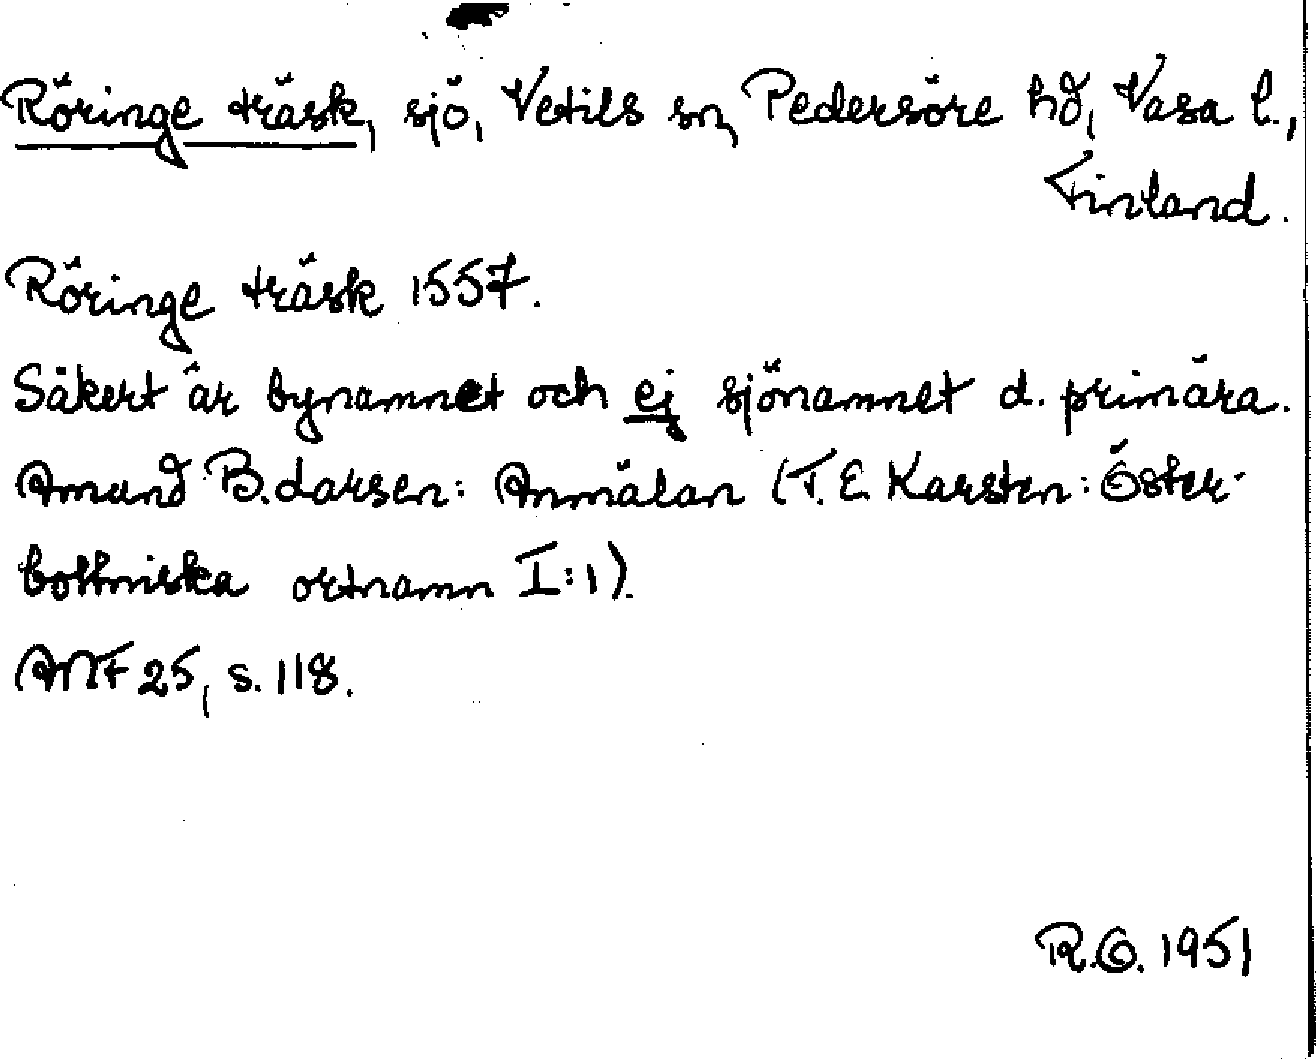 Röringe träsk, sjö, Vetils sn, Pedersöre hd, Vasa l.,
Finland.
Röringe träsk 1557.
Säkert är bynamnet och ej sjönamnet d. primära.
Amund B. Larsen: Anmälan (T. E. Karsten: Öster-
bottniska ortnamn I:1).
ANF 25, s. 118.
R.G. 1951